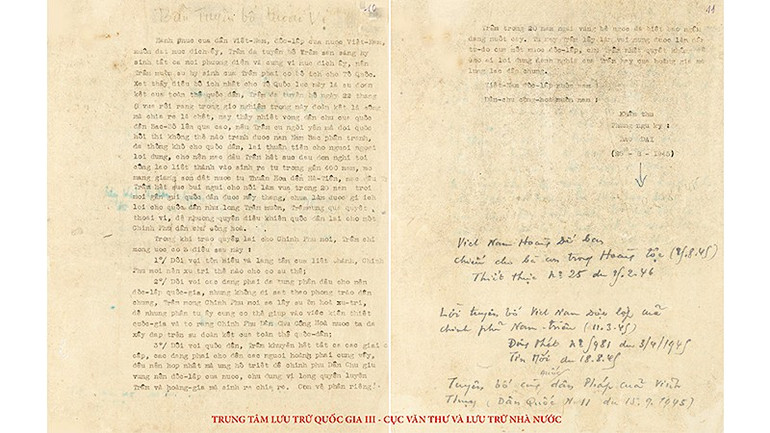 Bản Tuyên bố thoái Vị
Hanh phuc cua dân Việt-Nam, độc-lập cua nuoc Việt-Nam,
muôn đat muc dich ấy, Trẫm đa tuyên bố Trẫm sẵn sàng hy
sinh tất ca moi phuong diên và cung vi muc đich ấy, nên
Trẫm muốn su hy sinh cua Trẫm phai co bổ ich cho Tổ Quốc.
Xet thấy điều bổ ich nhất cho Tổ Quốc luc này là su đoàn
kết cua toàn thể quốc dân, Trẫm đa tuyên bố ngày 22 thang
8 vua rồi rang trong gio nghiêm trong này đoàn kết là sống
mà chia re là chết, nay thấy nhiệt vong dân chu cua quốc
dân Bac-Bô lên qua cao, nếu Trẫm cu ngồi yên mà đoi Quốc
hôi thi không thể nào tranh đuoc nan Nam Bac phân tranh,
đa thông khổ cho quốc dân, lai thuân tiên cho nguoi ngoai
loi dung, cho nên mac dầu Trẫm hết suc đau đon nghi toi
công lao liêt thanh vào sinh ra tu trong gần 400 năm, mo
mang giang son đất nuoc tu Thuân Hoa đến Hà-Tiên, mac dầu
Trẫm hết suc bui ngui cho nỗi làm vua trong 20 năm troi
moi gần gui quốc dân đuoc mấy thang, chua làm đuoc gi ich
loi cho quốc dân nhu long Trẫm muôn, Trẫm cung qua quyết
thoai vi, để nhuong quyền điều khiển quốc dân lai cho môt
Chinh Phu dân chu công hoà.
Trong khi trao quyền lai cho Chinh Phu moi, Trẫm chi
mong uoc co 3 điều sau này :
1°/ Đối voi tôn Miếu và lang tẩm cua liêt thanh, Chinh
Phu moi nên xu tri thế nào cho co su thể;
2°/ Đối voi cac đang phai đa tung phấn đấu cho nền
độc-lập quốc-gia, nhung không đi sat theo phong trào dân
chung, Trẫm mong Chinh Phu moi se lấy su ôn hoà xu-tri,
để nhung phần tu ấy cung co thể giup vào viêc kiến thiết
quốc-gia và to rang Chinh Phu Dân Chu Công Hoà nuoc ta đa
xây đap trên su đoàn kết cua toàn thể quốc-dân;
3°/ Đối voi quốc dân, Trẫm khuyên hết tất ca cac giai
cấp, cac đang phai cho đến cac nguoi hoàng phai cung vây,
đều nên hop nhất mà ung hô triêt để chinh phu Dân Chu giu
vung nền độc-lập cua nuoc, chu đung vi long quyến luyến
Trẫm và hoàng-gia mà sinh ra chia re. Con về phần riêng
11
Trẫm trong 20 năm ngai vàng bê ngoc đa biết bao nhiêu
đang nuốt cay. Và nay Trẫm lấy làm vui đuoc làm dân
tu-do cua môt nuoc độc-lập, chu Trẫm nhất quyết không để
cho ai loi dung danh nghia cua Trẫm hay cua hoàng gia mà
lung lac dân chung.
Việt-Nam độc-lập muôn năm !
Dân-chu công-hoà muôn năm ;
Khâm thu
Phung ngu ky :
BAO DAI
(25 - 8 - 1945)
Việt Nam Hoàng Đế ban
chiếu cho bà con trong Hoàng tộc (25.8.45)
Thiết thực Nº 25 du 15.2.46
Lời tuyên bố Việt Nam Độc lập của
chính phủ Nam-triều (11.3.45)
Đông Phát Nº 5981 du 3/4/1945
Tin Mới du 18.8.45
cuối
Tuyên bố cùng dân Pháp của Vĩnh
Thụy (Dân Quốc Nº 11 du 15.9.1945)
TRUNG TÂM LƯU TRỮ QUỐC GIA III - CỤC VĂN THƯ VÀ LƯU TRỮ NHÀ NƯỚC